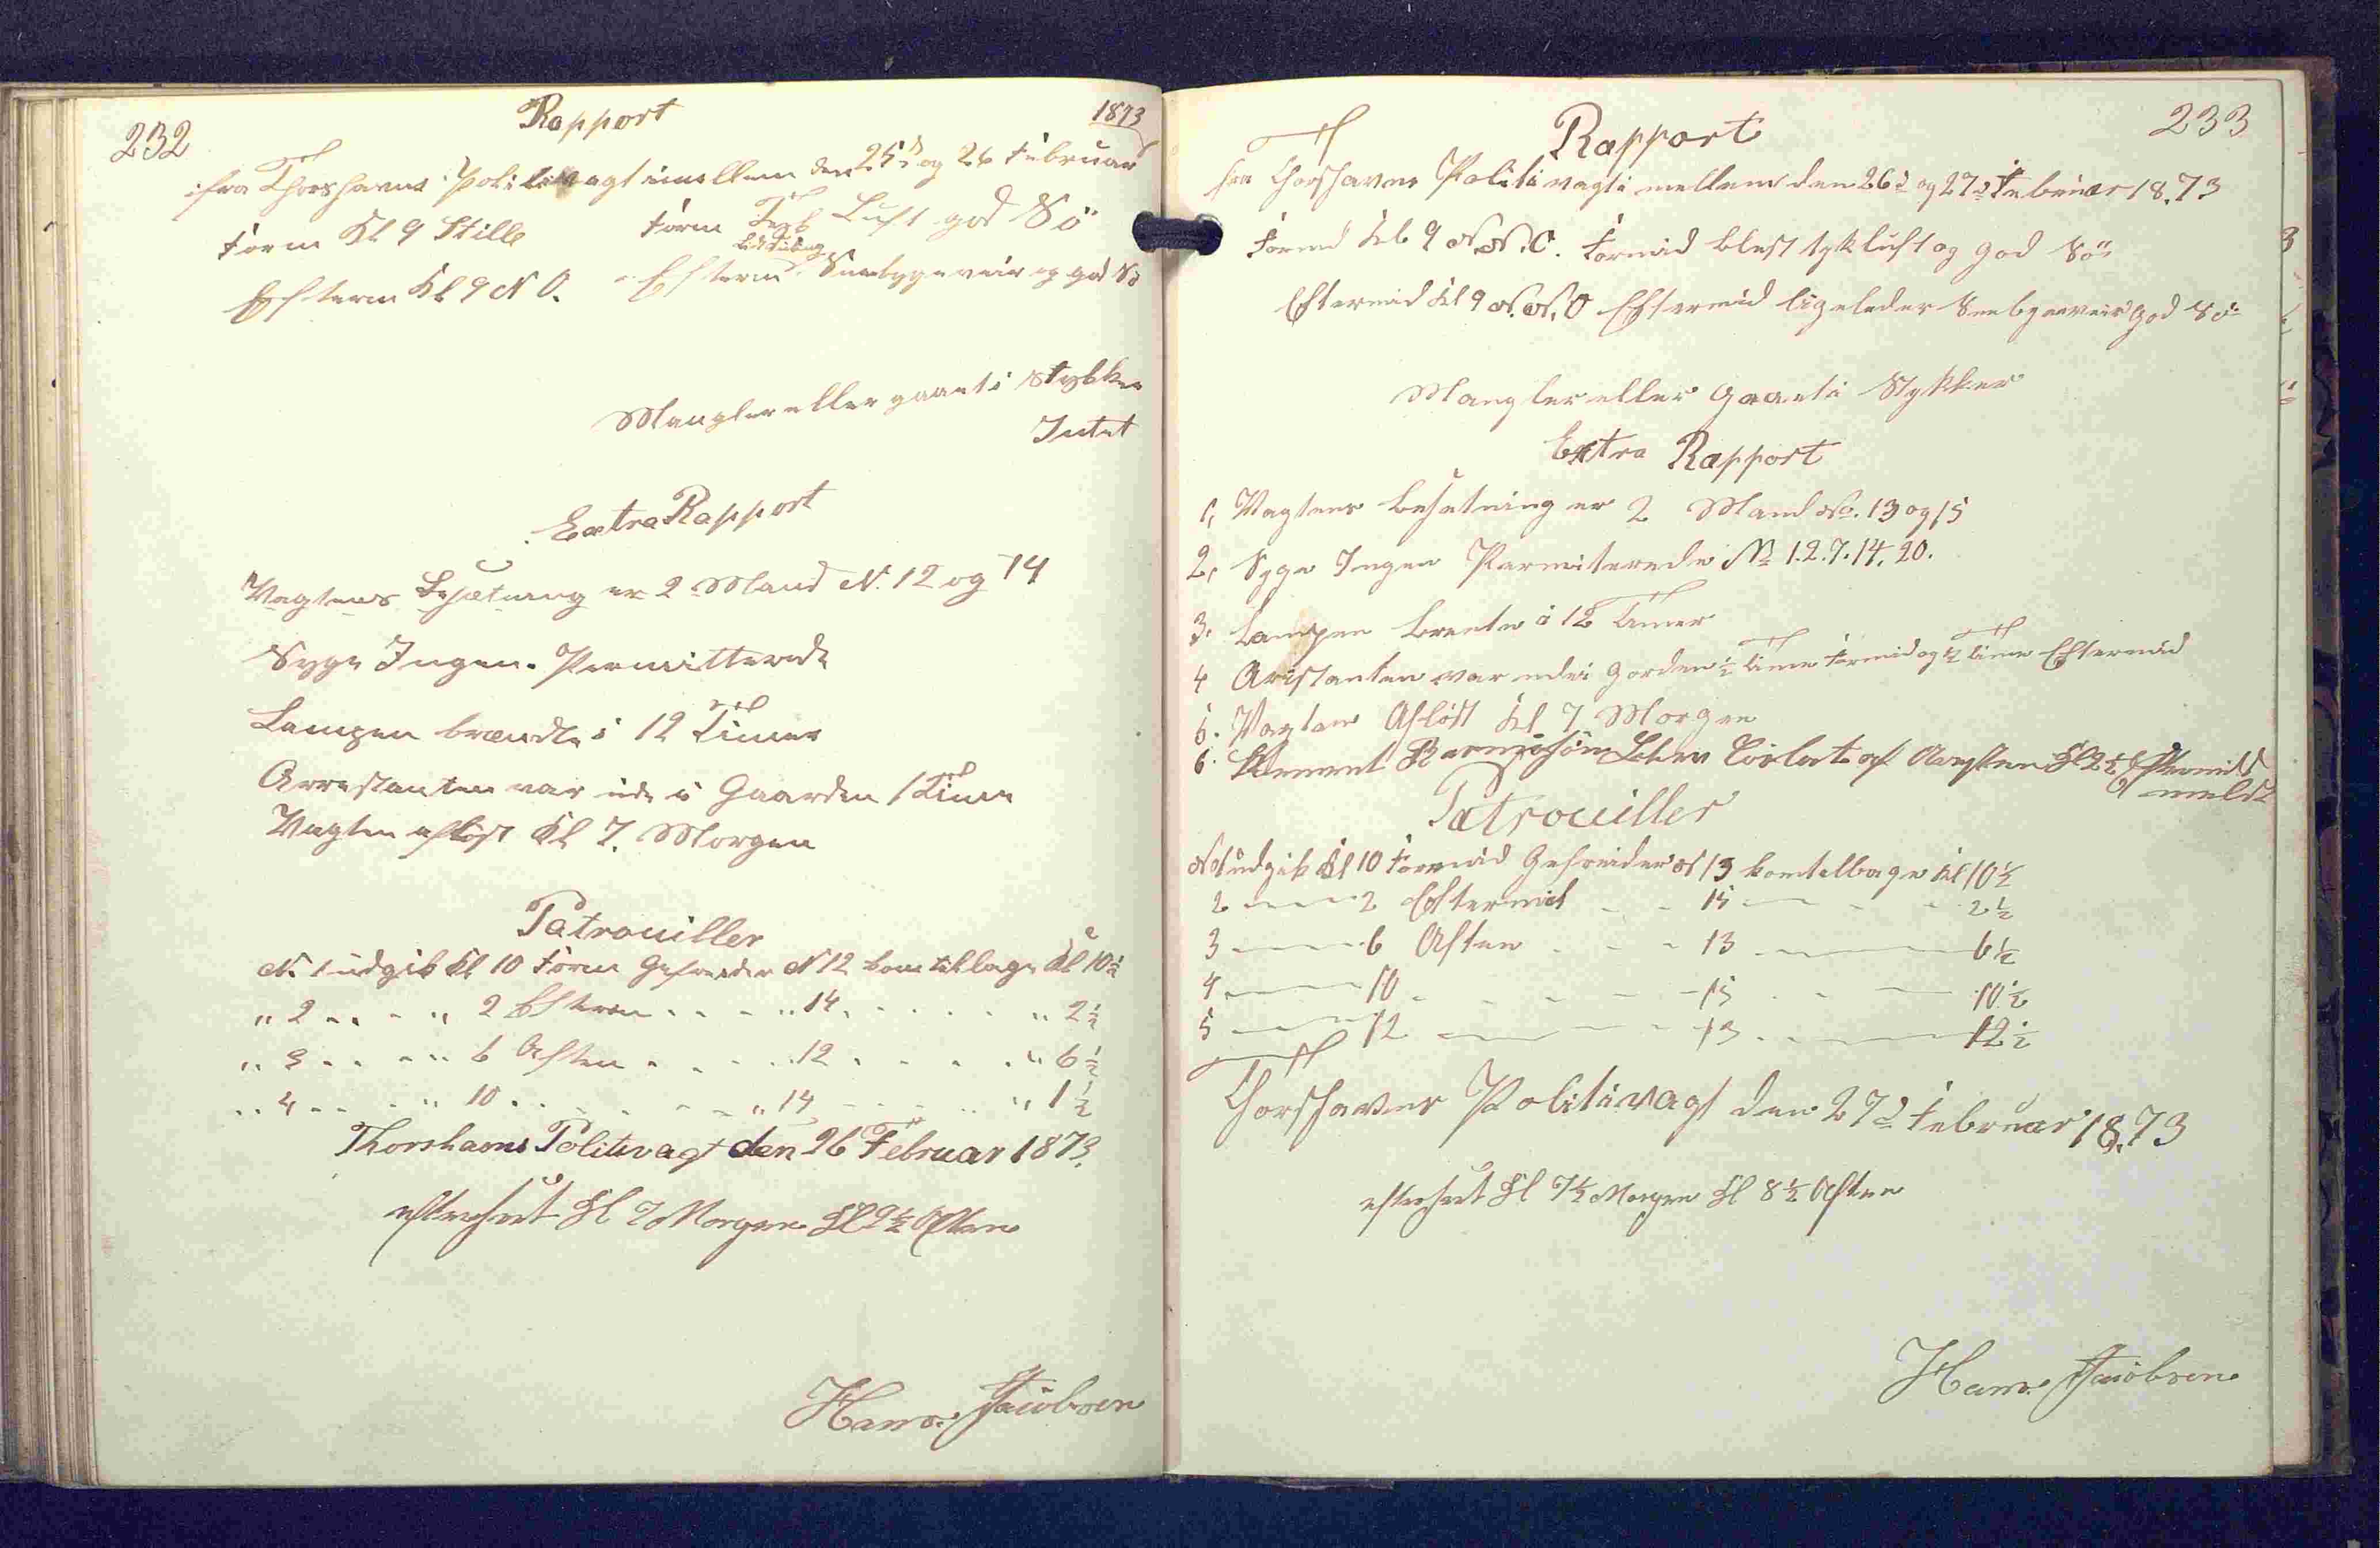 232
Rapport
1873
fra Thorshavns Politievagt imellem den 25d og 26 Februar
Form Kl 9 Stille Form Tyk Luft god Sö
lidt
Efterm Kl 9 N O. Efterm Sneebygeveir og god Sö
Mangler eller gaaet i Stykker
Intet
Extra Rapport
Vagtens Besætning er 2 Mand N. 12 og 14
Syge Ingen. Permitterede
Lampen brændte i 12 Timer
Arrestanten var ude i Gaarden 1 Time
Vagten aflöst Kl 7. Morgen
Patrouiller
No 1 udgik Kl 10 Form Gefreider N 12 kom tilbage Kl 10½
" 2 " 2 Efterm " 14 " 2½
" 3 " 6 Aften 12 " 6½
" 4 " 10 " 14 " 1½
Thorshavns Politivagt den 26 Februar 1873.
efterseet Kl 7 Morgen Kl 9½ Aften
Hans Jacobsen
233
Rapport
fra Thorshavns Politivagt imellem den 26d og 27d Februar 18.73
Formd Kl 9 N.N.O. Formid blest tyk luft og god Sö
Eftermid Kl 9 N.N.O Eftermid ligeledes Sneebygeveir god Sö
Mangler eller gaaet i Stykker
Extra Rapport
1, Vagtens besætning er 2 Mand No. 13 og 15
2, Syge Ingen Permiterede No 1.2.7.14.20.
3. Lampen brente i 12 Timer
4 Aristanten var ude i Gorden ½ Time Formid og ½ Time Eftermid
5. Vagten Aflöst Kl 7 Morgen
6. Kl 2½ Eftermid
meldt
Patrouiller
No 1 udgik Kl 10 Formid Gefreider N 13 kom tilbage Kl 10½
2 2 Eftermid 15 2½
3 6 Aften 13 6½
4 10 15 10½
5 12 13 12½
Thorshavns Politivagt den 27d Februar 18.73
efterseet Kl 7½ Morgen Kl 8½ Aften
Hans Jacobsen